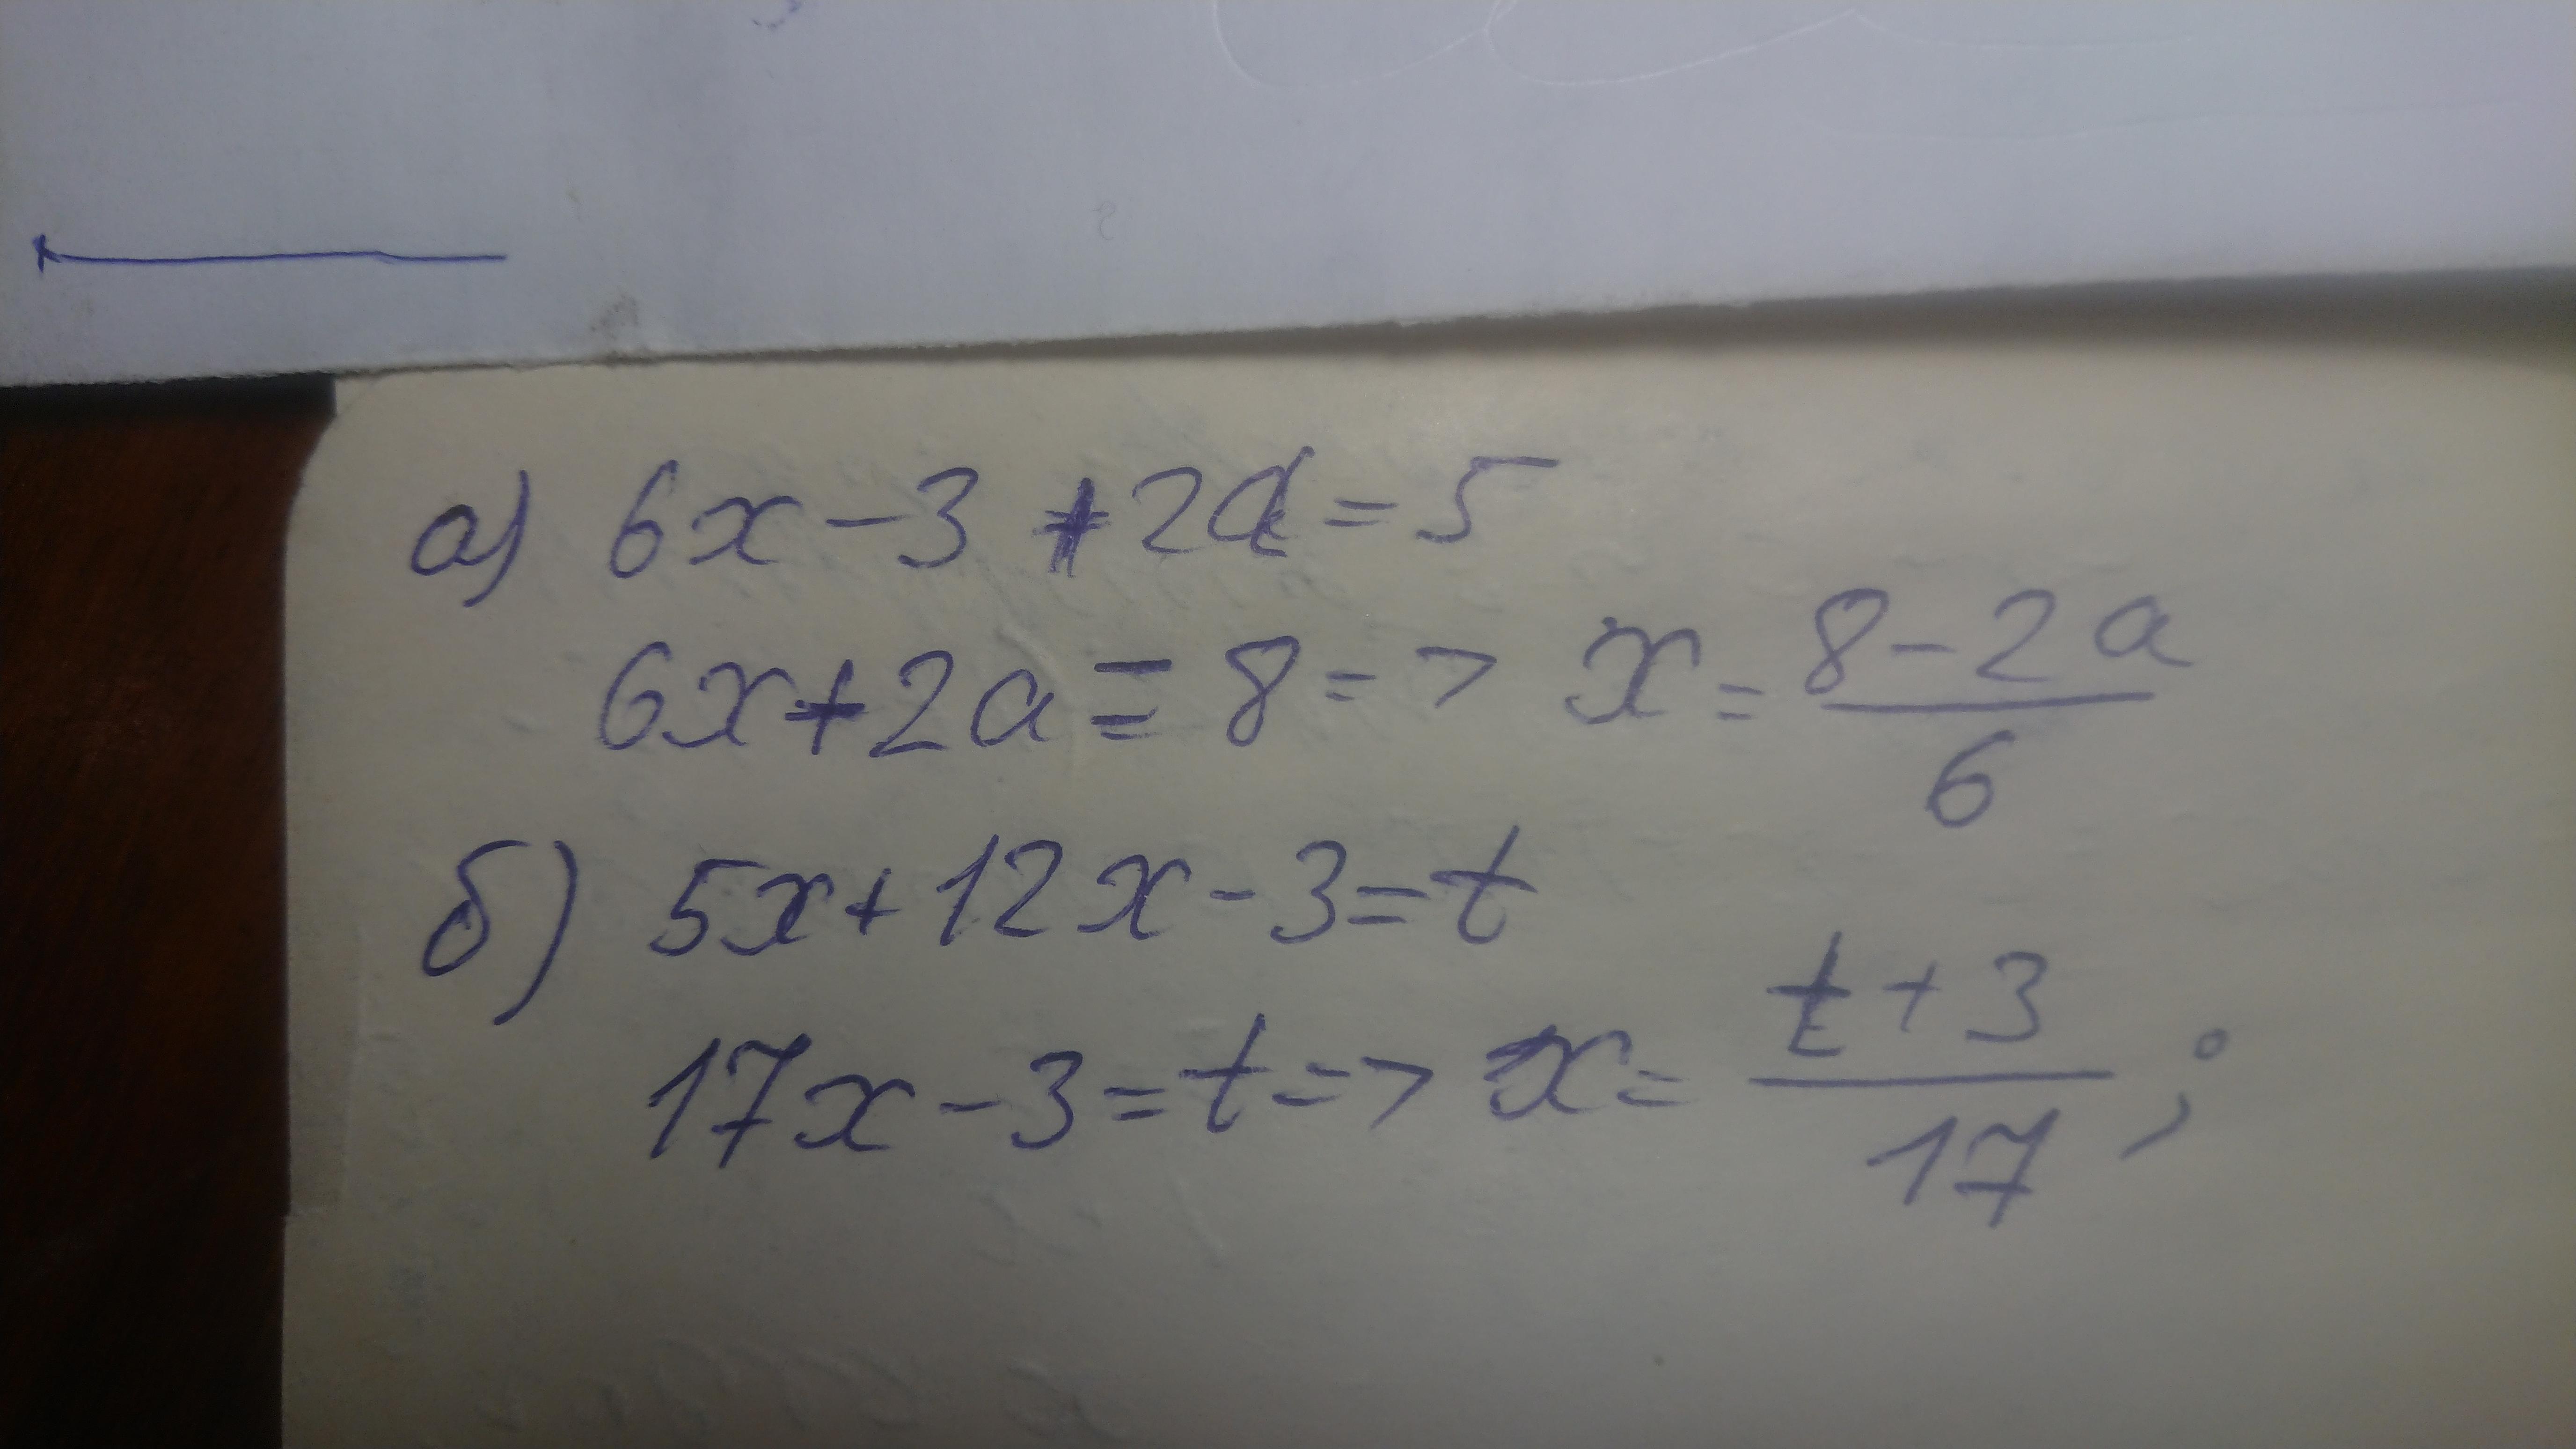 а) 6x - 3 + 2a = 5
6x + 2a = 8 => x = (8 - 2a)/6
б) 5x + 12x - 3 = t
17x - 3 = t => x = (t + 3)/17 ;